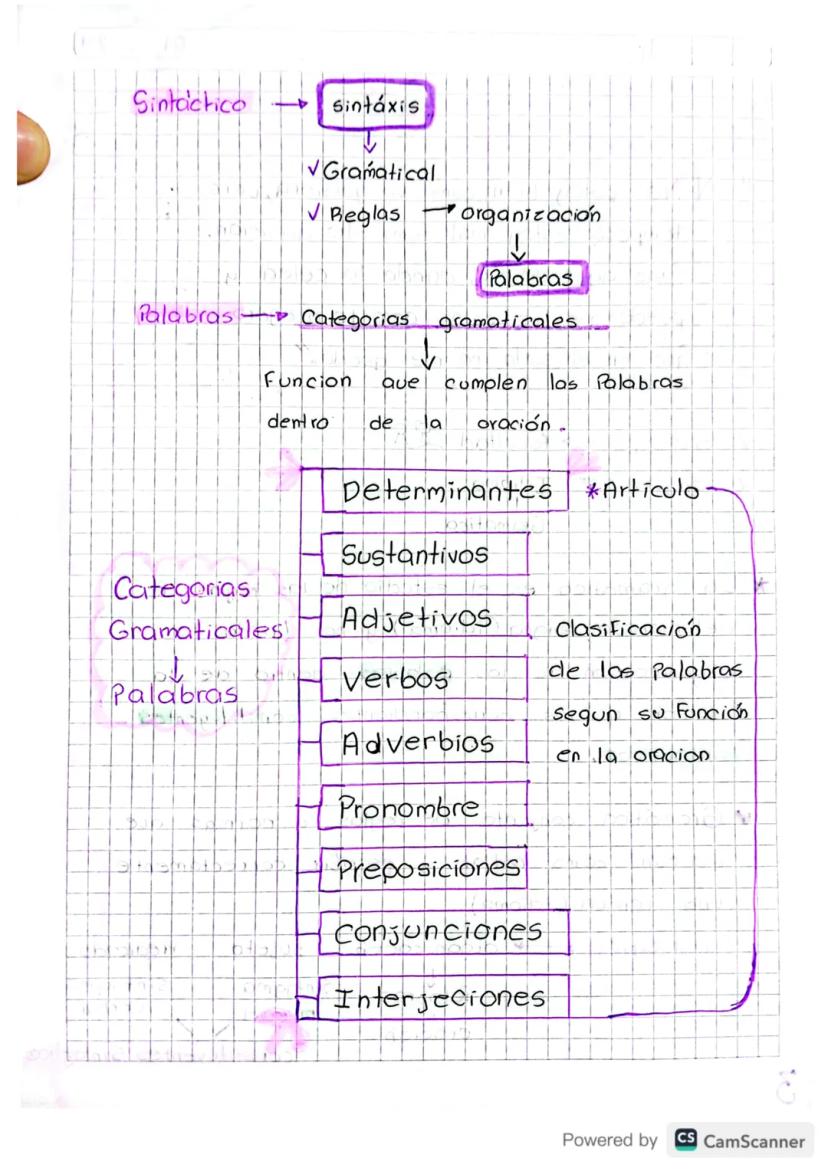 Sintáctico → sintáxis
✓ Gramatical
✓ Reglas → organización
Palabras
Palabras → Categorias gramaticales
Funcion que cumplen las Palabras
dentro de la oración.
Determinantes *Artículo
Sustantivos
Adjetivos
Verbos
Adverbios
Pronombre
Preposiciones
Conjunciones
Interjeciones
Categorias
Gramaticales
↓
Palabras
Clasificación
de las Palabras
segun su Función
en la oracion
Powered by CS CamScanner